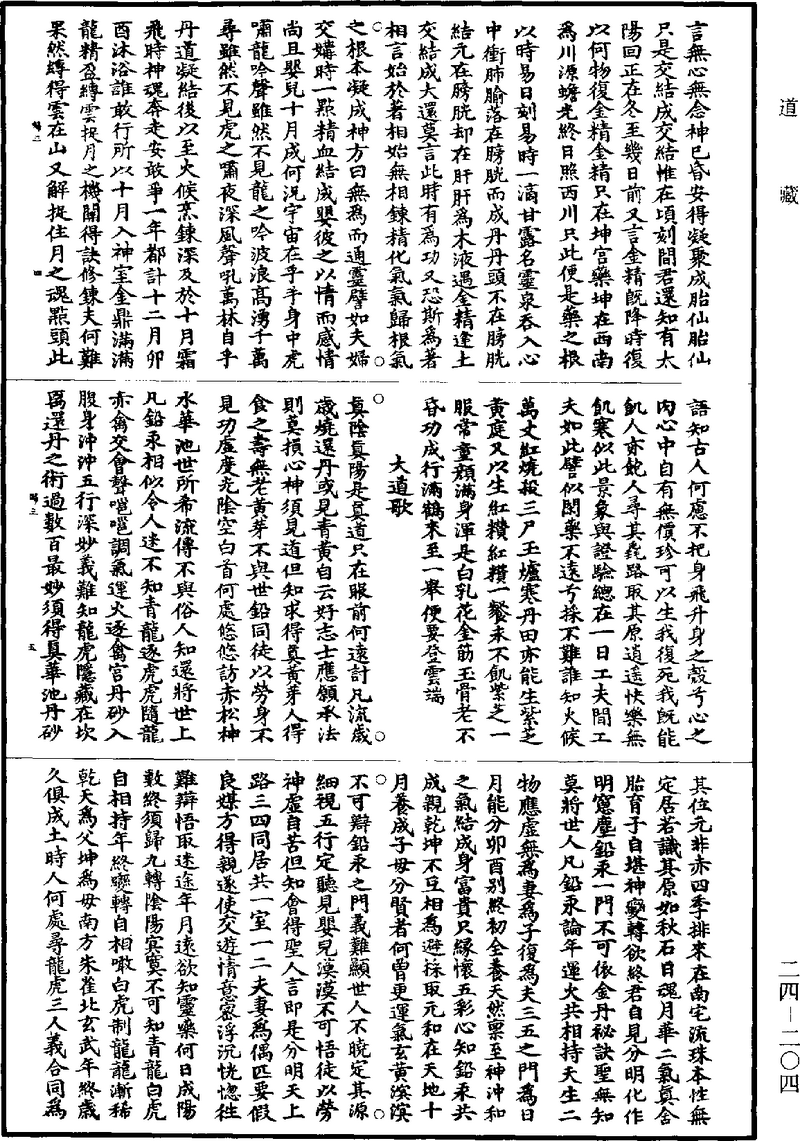 道藏
言無心無念神已昏安得凝聚成胎仙胎仙
只是交結成交結惟在頃刻間君還知有太
陽回正在冬至幾日前又言金精既降時復
以何物復金精金精只在坤宫藥坤在西南
爲川源蟾光終日照西川只此便是藥之根
以時易日刻易時一滴甘露名靈泉吞入心
中衝肺腧落在膀胱而成丹丹頭不在膀胱
結元在膀胱却在肝肝爲木液遇金精逢土
交結成大還莫言此時有爲功又恐斯爲著
相言始於著相始無相鍊精化氣氣歸根氣
之根本凝成神方曰無爲而通靈譬如夫婦
交媾時一點精血結成嬰彼之以情而感情
尚且嬰兒十月成何況宇宙在乎手身中虎
嘯龍吟聲雖然不見龍之吟波浪高湧千萬
尋雖然不見虎之嘯夜深風聲吼萬林自乎
丹道凝結後以至火候烹鍊深及於十月霜
飛時神魂奔走安敢爭一年都計十二月卯
酉沐浴誰敢行所以十月入神室金鼎滿滿
龍精盈縛雲捉月之機關得訣修鍊夫何難
果然縛得雲在山又解捉住月之魂點頭此
語知古人何慮不把身飛升身之殼兮心之
肉心中自有無價珍可以生我復死我既能
飢人亦飽人尋其毳路取其原逍遥快樂無
飢寒似此景象與證驗總在一日工夫間工
夫如此譬似閑藥不遠兮採不難誰知火候
萬丈紅燒殺三尸玉爐寒丹田亦能生紫芝
黄庭又以生紅糝紅糝一餐永不飢紫芝一
服常童顔滿身渾是白乳花金筋玉骨老不
昏功成行滿鶴來至一舉便要登雲端
大道歌
真陰真陽是真道只在眼前何遠討凡流歲
歲燒還丹或見青黄自云好志士應領承法
則莫損心神須見道但知求得真黄芽人得
食之壽無老黄芽不與世鉛同徒以勞身不
見功虚度光陰空白首何處悠悠訪赤松神
水華池世所希流傳不與俗人知還將世上
凡鉛汞相似令人迷不知青龍逐虎虎隨龍
赤禽交會聲嗈嗈調氣運火逐禽宫丹砂入
腹身沖沖五行深妙義難知龍虎隱藏在坎
离還丹之術過數百最妙須得真華池丹砂
其位元非赤四季排來在南宅流珠本性無
定居若識其原如秋石日魂月華二氣真舍
胎育子自堪神變轉欲終君自見分明化作
明窻塵鉛汞一門不可依金丹秘訣聖無知
莫將世人凡鉛汞論年運火共相持天生二
物應虛無爲妻爲子復爲夫三五之門爲日
月能分卯酉别終初全養天然禀至神沖和
之氣結成身富貴只緣懷五彩心知鉛汞共
成親乾坤不互相爲避採取元和在天地十
月養成子母分賢者何曾更運氣玄黄溟滓
不可辯鉛汞之門義難顯世人不曉定其源
細視五行定聽見嬰兒漠漠不可悟徒以勞
神虛自苦但知會得聖人言即是分明天上
路三四同居共一室一二夫妻爲偶匹要假
良媒方得親遂使交遊情意密浮沉恍惚往
難辯悟取迷途年月遠欲知靈藥何日成陽
數終須歸九轉陰陽寂寞不可知青龍白虎
自相持年終變轉自相啖白虎制龍龍漸稀
乾天爲父坤爲母南方朱雀北玄武年終歲
久俱成土時人何處尋龍虎三人義合同爲
二四—二〇四